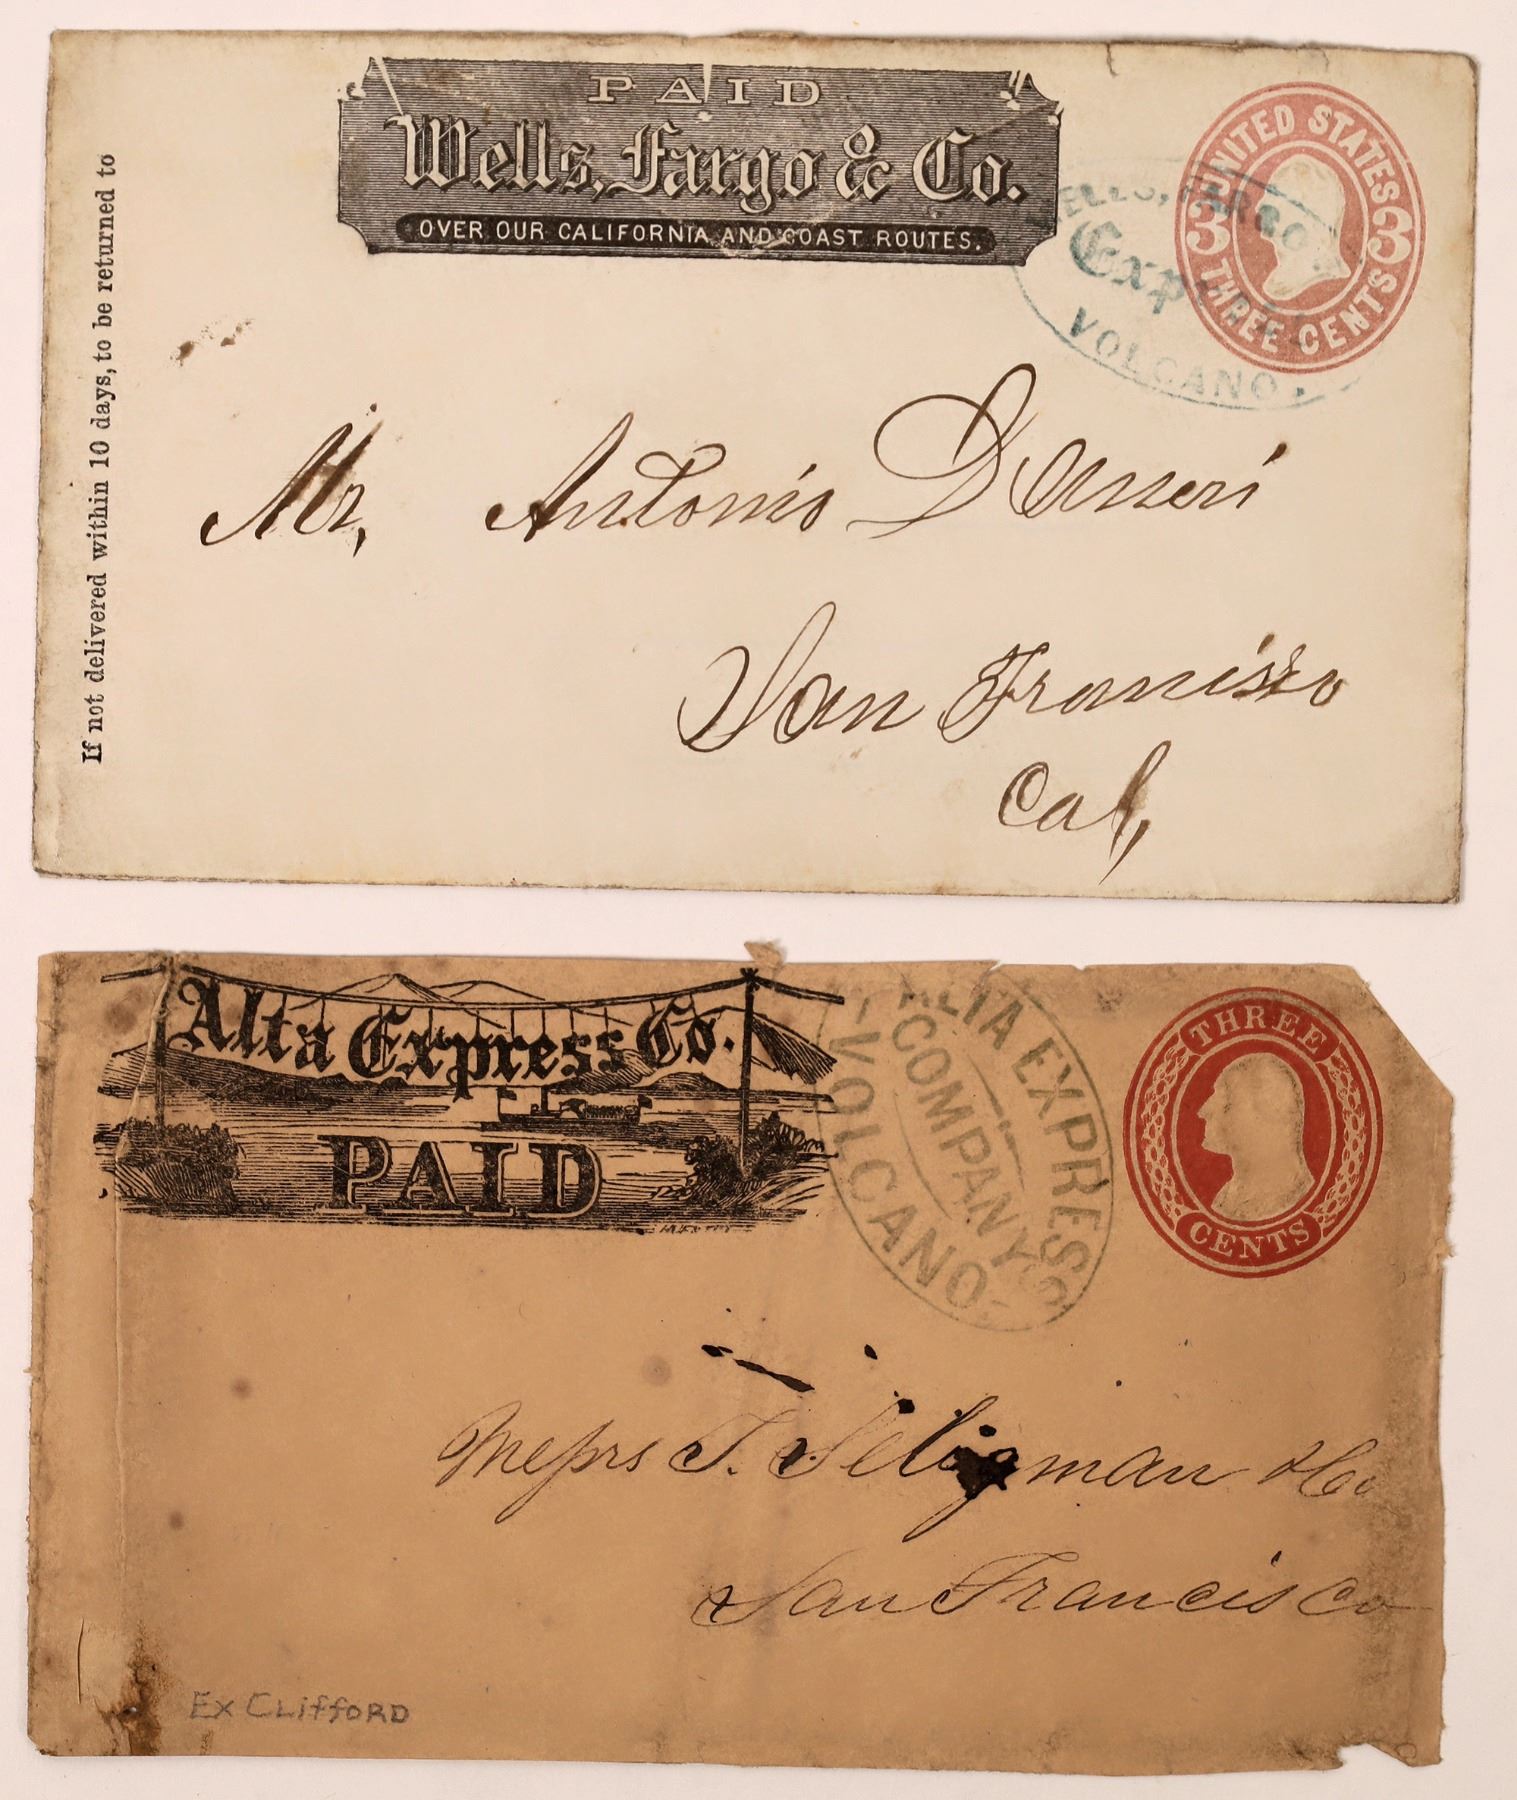 PAID
Wells, Fargo & Co.
OVER OUR CALIFORNIA AND COAST ROUTES.
UNITED STATES
3 3
THREE CENTS
WELLS, FARGO
Express
VOLCANO.
If not delivered within 10 days, to be returned to
Mr, Antonio
San Francisco
Cal,
Alta Express Co.
PAID
ALTA EXPRESS
COMPANYS
VOLCANO
THREE
CENTS
Messrs J. Seligman & Co
San Francisco
EX CLIFFORD